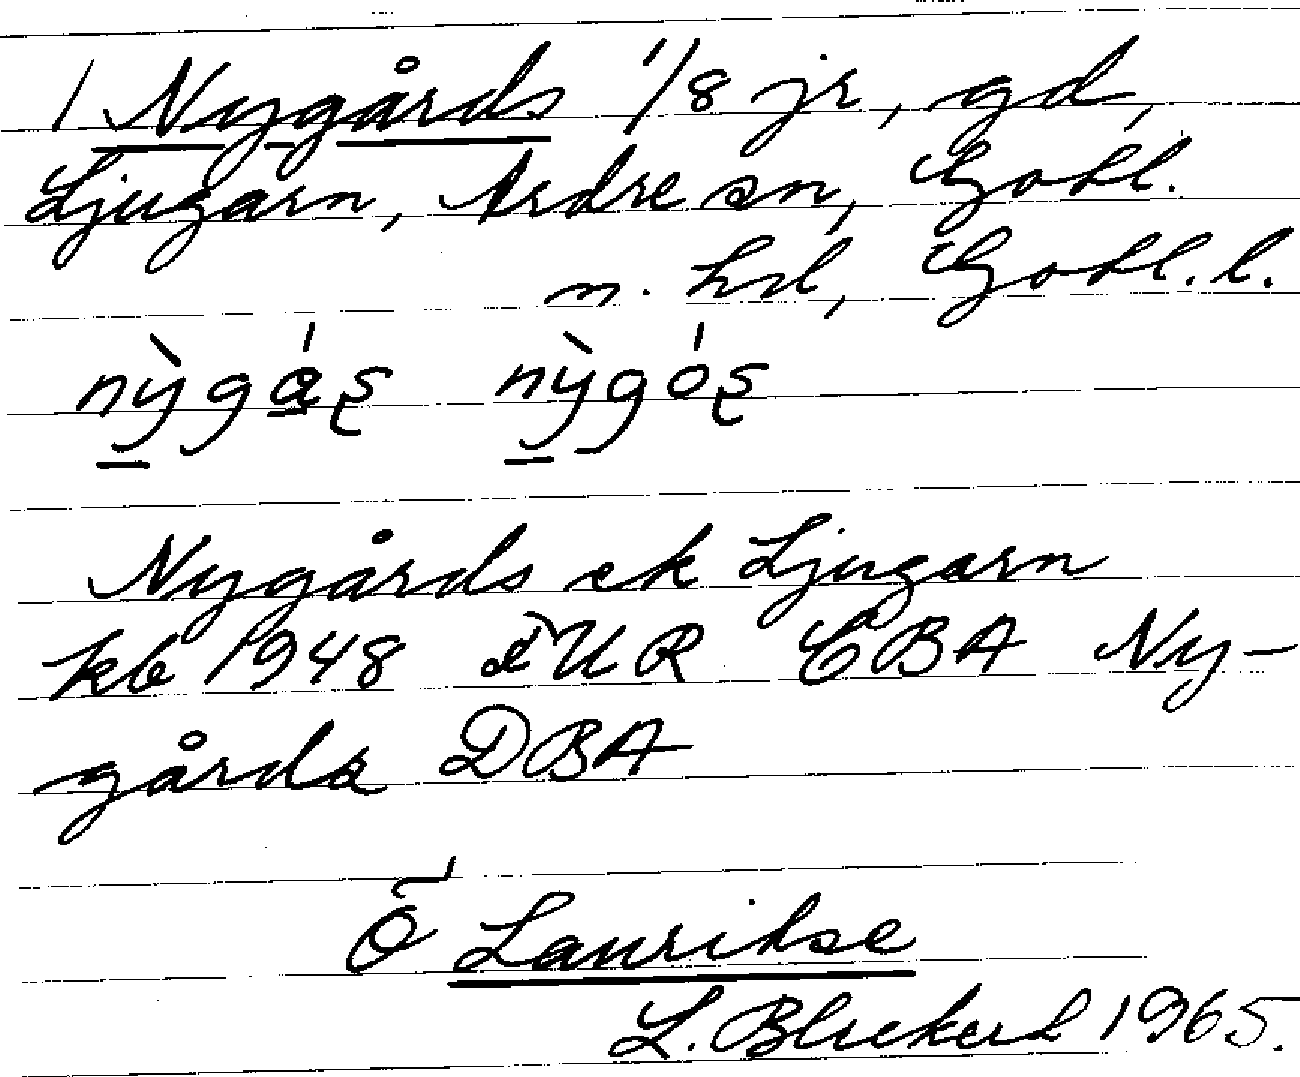 1 Nygårds 1/8 jr, gd,
Ljugarn, Ardre sn, Gotl.
n. hd, Gotl. l.
nỳgás nỳgós
Nygårds ek Ljugarn
kb 1948 äUR EBA Ny-
gårda DBA
Ö Lauritse
L. Bleckert 1965.